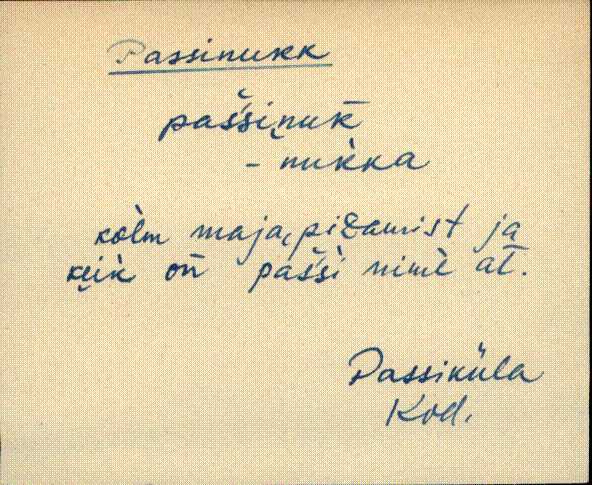 Passinukk
paššinuk̄
- nuk̀ka
kòlm maja,pidamist ja
keik̀ on̄ pašši nimè at̄.
Passiküla
Kod.